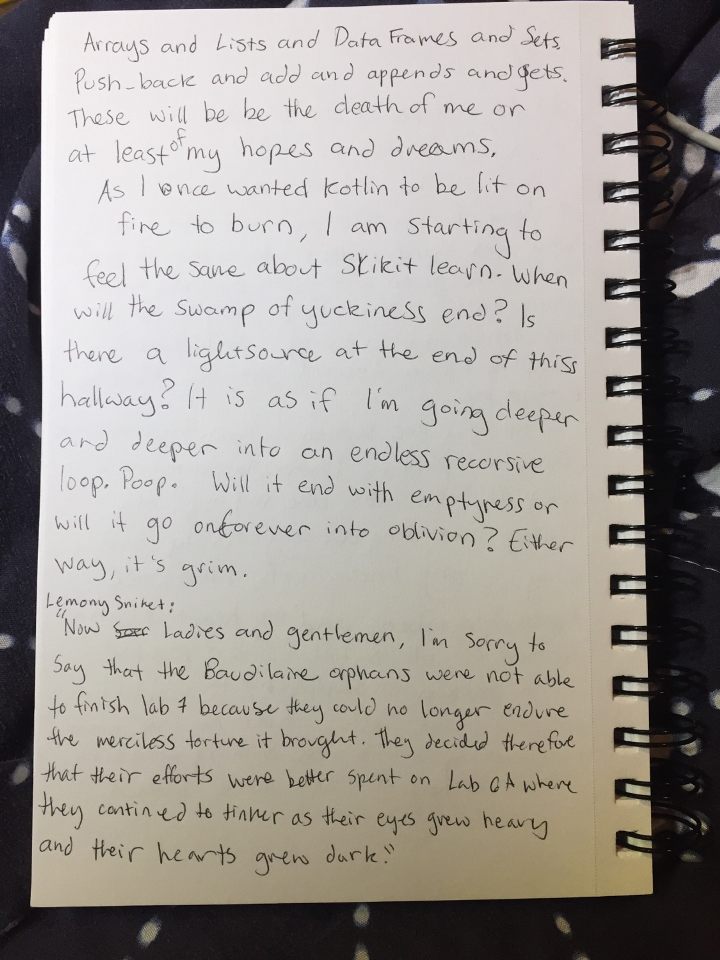 Arrays and Lists and Data Frames and Sets
Push_back and add and appends and gets.
These will be be the death of me or
at least of my hopes and dreams.
As I once wanted Kotlin to be lit on
fire to burn, I am starting to
feel the same about Skikit learn. When
will the swamp of yuckiness end? Is
there a lightsource at the end of thiss
hallway? It is as if I'm going deeper
and deeper into an endless recorsive
loop. Poop. Will it end with emptyness or
will it go on forever into oblivion? Either
way, it's grim.
Lemony Sniket:
"Now Ladies and gentlemen, I'm sorry to
say that the Baudilaire orphans were not able
to finish lab 7 because they could no longer endure
the merciless torture it brought. They decided therefore
that their efforts were better spent on Lab 6A where
they contined to tinker as their eyes grew heavy
and their hearts grew dark."